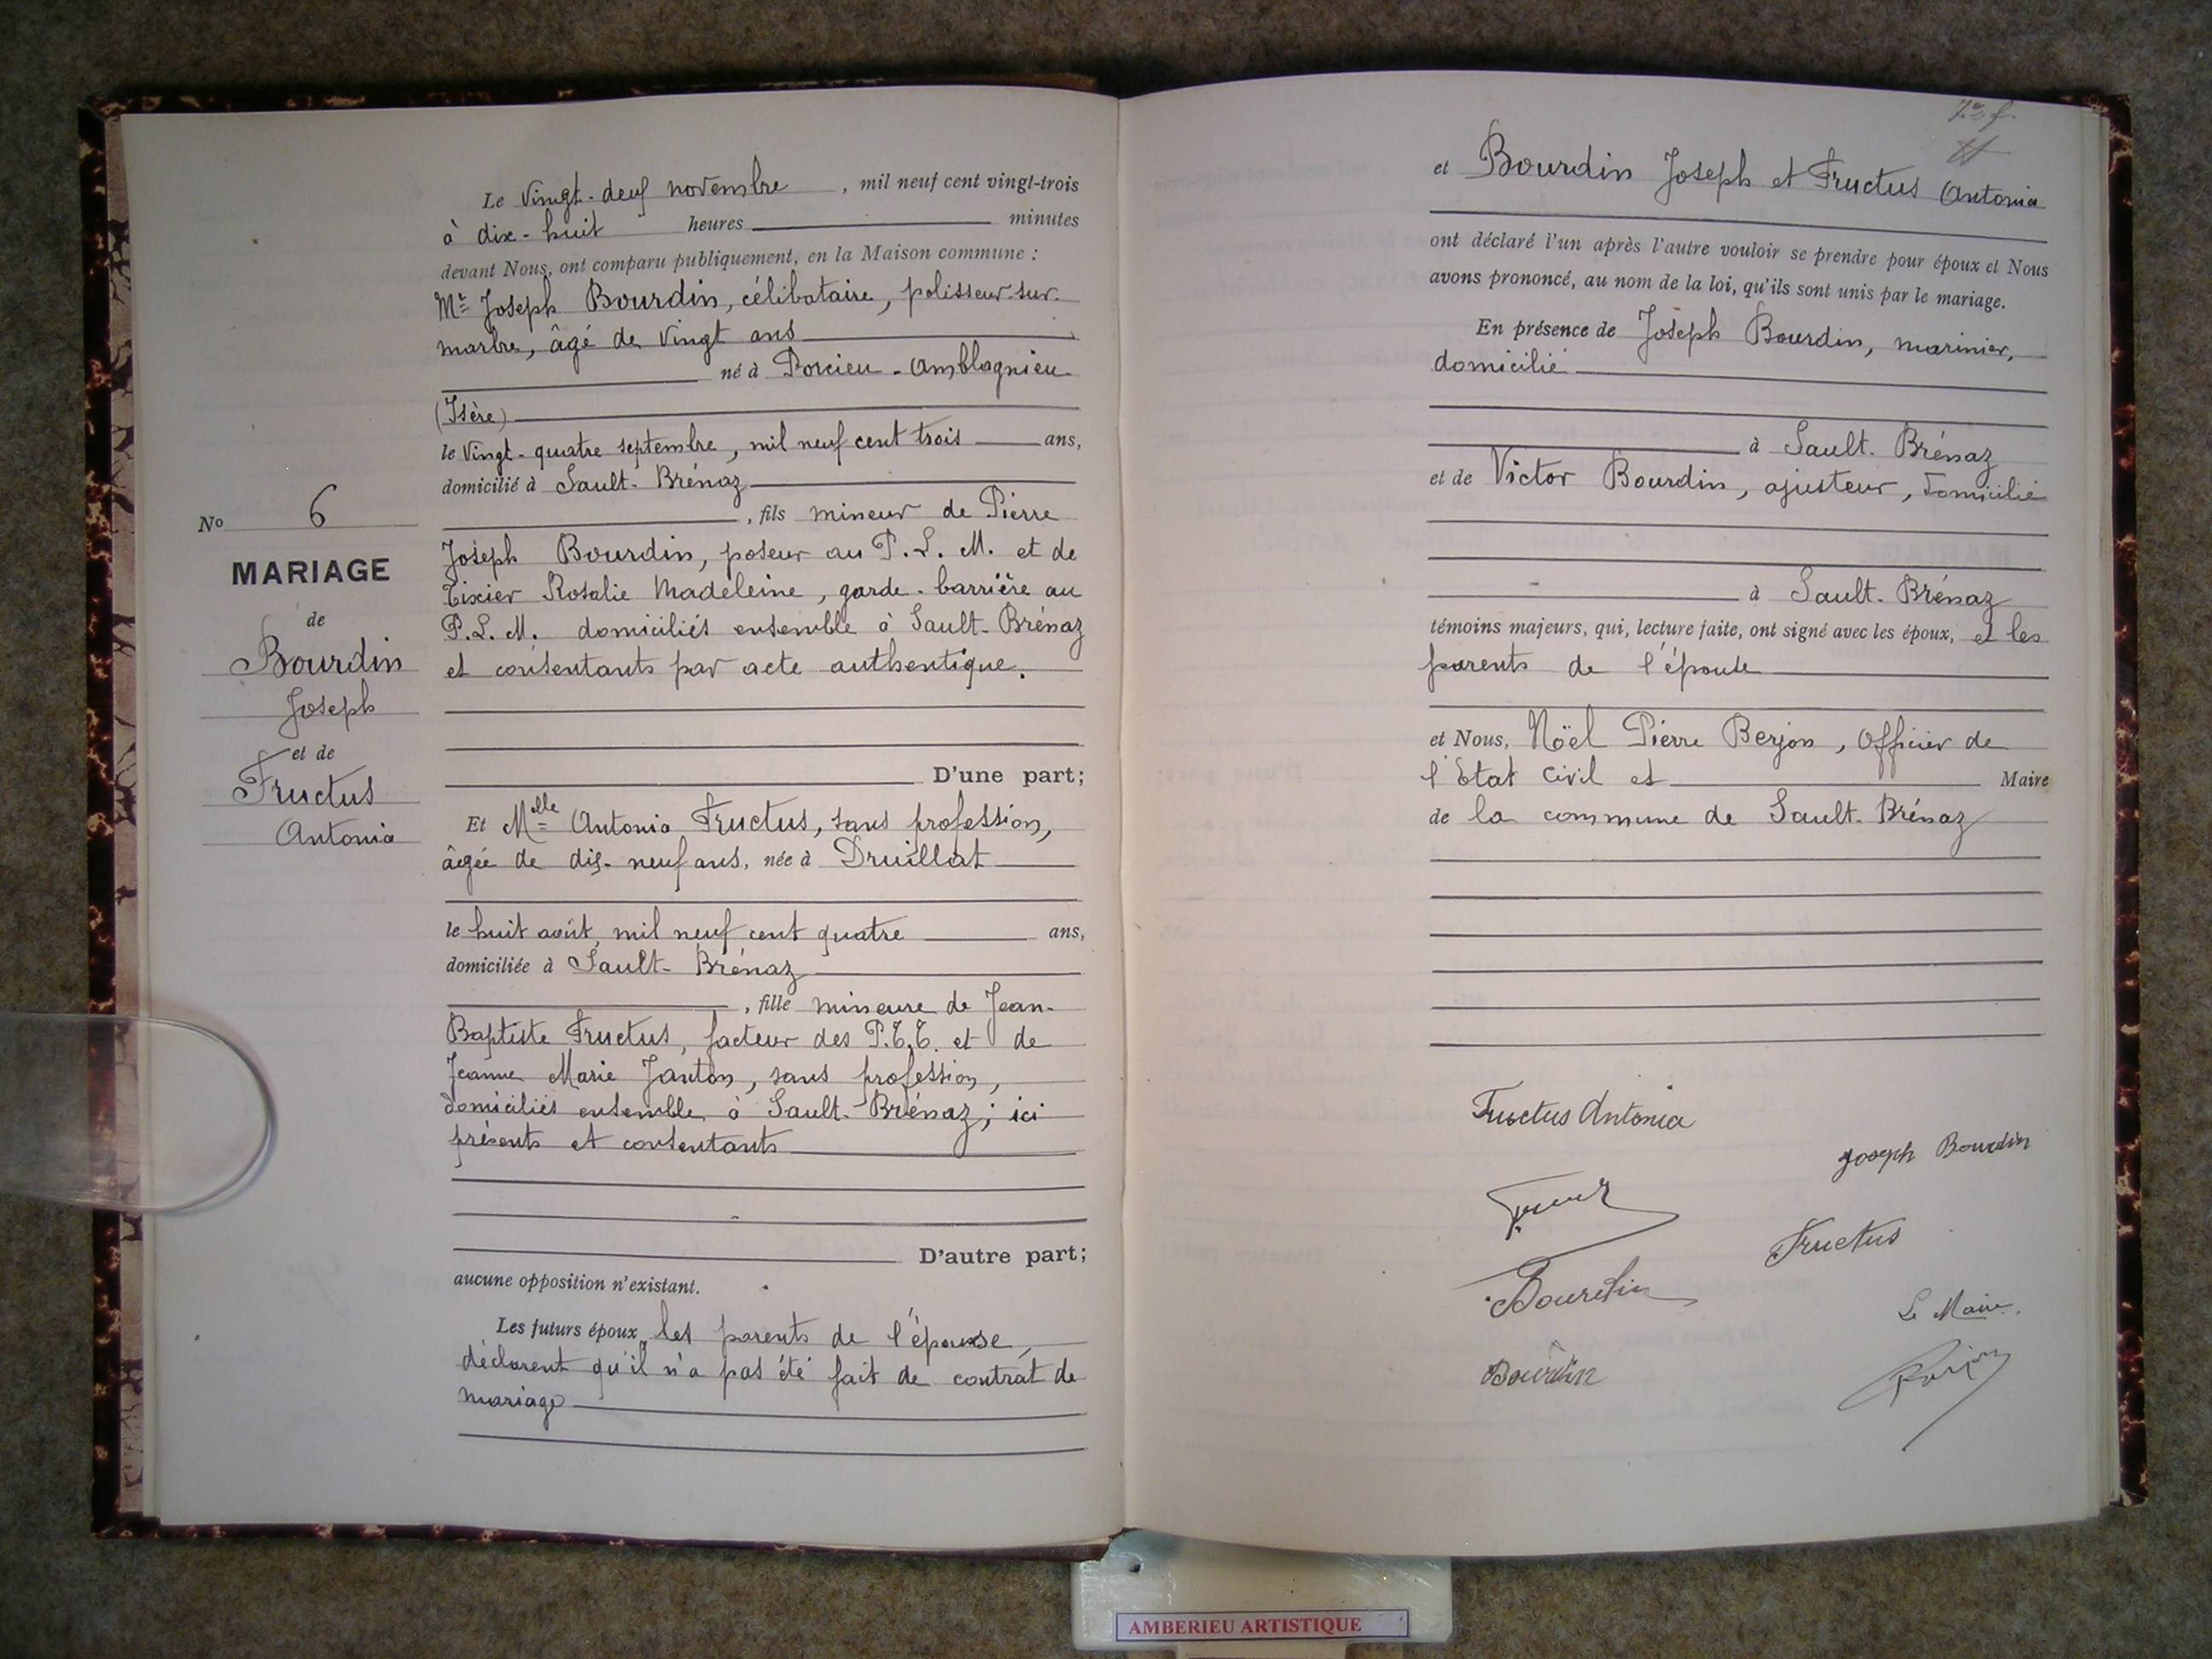 Le Vingt-deux novembre, mil neuf cent vingt-trois
à dix-huit heures minutes
devant Nous, ont comparu publiquement, en la Maison commune :
Mr Joseph Bourdin, célibataire, polisseur-sur-
marbre, âgé de Vingt ans
né à Porcieu-Amblagnieu
(Isère)
le Vingt-quatre septembre, mil neuf cent trois ans,
domicilié à Sault-Brénaz
No 6
, fils mineur de Pierre
Joseph Bourdin, poseur au P.L.M. et de
MARIAGE
Tixier Rosalie Madeleine, garde-barrière au
de
P.L.M. domiciliés ensemble à Sault-Brénaz
Bourdin
et consentants par acte authentique.
Joseph
et de
D'une part;
Fructus
Antonia
Et Mlle Antonia Fructus, sans profession,
âgée de dix-neuf ans, née à Druillat
le huit août, mil neuf cent quatre ans,
domiciliée à Sault-Brénaz
, fille mineure de Jean-
Baptiste Fructus, facteur des P.T.T. et de
Jeanne Marie Janton, sans profession,
domiciliés ensemble à Sault-Brénaz; ici
présents et consentants
D'autre part;
aucune opposition n'existant.
Les futurs époux, les parents de l'épouse,
déclarent qu'il n'a pas été fait de contrat de
mariage
et Bourdin Joseph et Fructus Antonia
ont déclaré l'un après l'autre vouloir se prendre pour époux et Nous
avons prononcé, au nom de la loi, qu'ils sont unis par le mariage.
En présence de Joseph Bourdin, marinier,
domicilié
à Sault-Brénaz
et de Victor Bourdin, ajusteur, domicilié
à Sault-Brénaz
témoins majeurs, qui, lecture faite, ont signé avec les époux, et les
parents de l'épouse
et Nous, Noël Pierre Berjon, Officier de
l'Etat Civil et Maire
de la commune de Sault-Brénaz
Fructus Antonia
Joseph Bourdin
Fructus
Bourdin
Le Maire
Bourdin
Berjon
AMBERIEU ARTISTIQUE